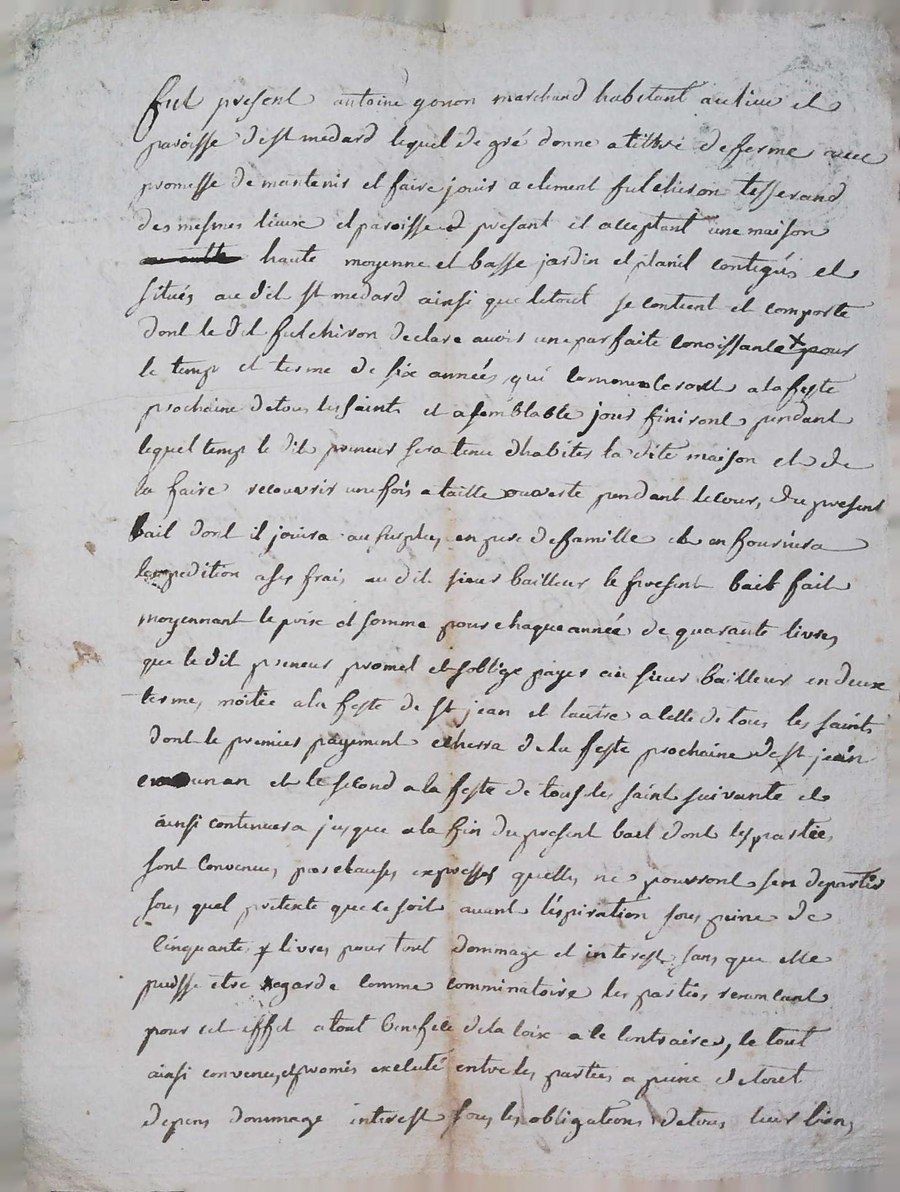 fut present antoine gonon marchand habitant au lieu et
paroisse de st medard lequel de gré donne a tittre de ferme avec
promesse de mantenir et faire jouir a clement fulchiron tesserand
des mesmes lieux et paroisse present et acceptant une maison
haute moyenne et basse jardin et planil contigus et
situés au dit st medard ainsi que letout se contient et comporte
dont le dit fulchiron declare avoir une parfaite conoissance pour
le temp et terme de six années qui a la feste
prochaine de tous les saints et a semblable jour finiront pendant
lequel temp le dit preneur sera tenu dhabiter la dite maison et de
la faire recouvrir une fois a taille ouverte pendant le cour, du present
bail dont il jouira au surplus en pere de famille et en fournira
lexpedition a ses frais au dit sieur bailleur le present bail fait
moyennant le prix et somme pour chaque année de quarante livres
que le dit preneur promet et soblige payer au sieur bailleur en deux
termes moitie a la feste de st jean et lautre a celle de tous les saints
dont le premier payement echerra de la feste prochaine de st jean
en un an et le second a la feste de tous les saint suivante et
ainsi continuera jusque a la fin du present bail dont les parties
sont convenues par clauses expresses quelles ne pourront sen departir
sous quel pretexte que ce soit avant lespiration sous peine de
cinquante livres pour tout dommage et interest sans que elle
puisse etre regarde comme comminatoire les parties renoncant
pour cet effet a tout benefice de la loix a ce contraire, le tout
ainsi convenu, et promis executé entre les parties a peine de tout
depens dommage interest sous les obligations de tous leur biens